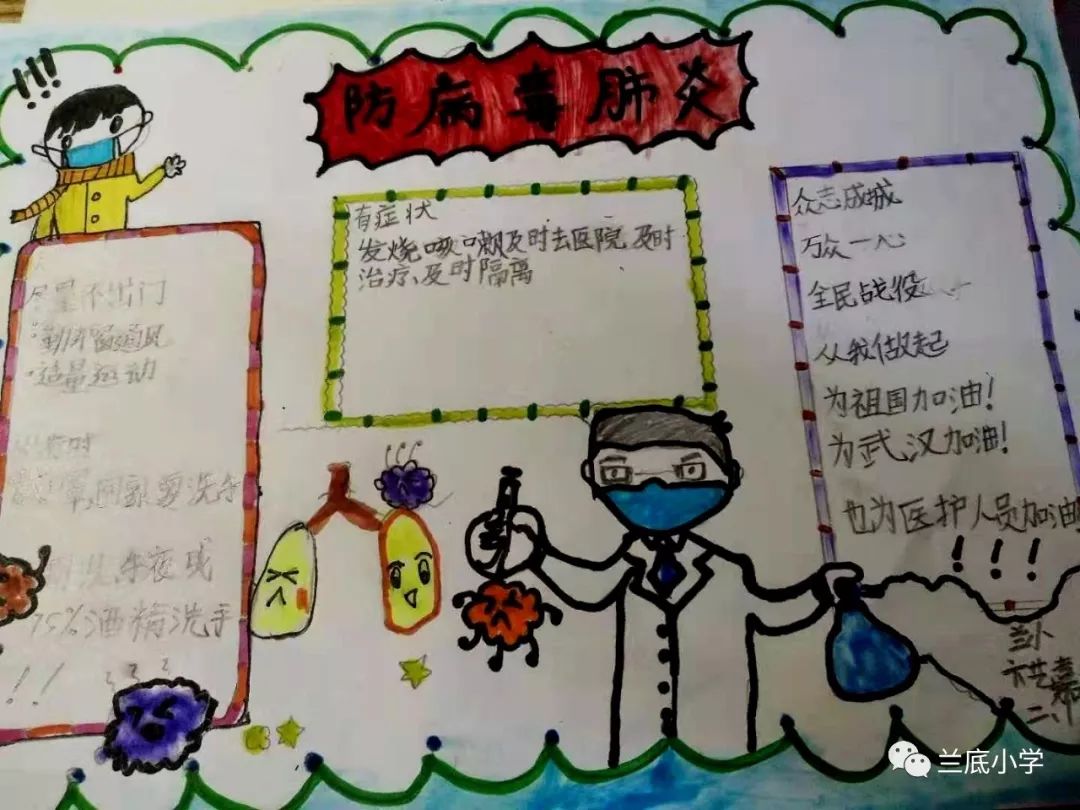 防病毒肺炎
有症状
发烧咳嗽及时去医院及时
治疗、及时隔离
众志成城
万众一心
全民战役
从我做起
为祖国加油!
为武汉加油!
也为医护人员加油
!!!
尽量不出门
勤开窗通风
适量运动
回家要洗手
洗手液或
75%酒精洗手
!!
!!!
兰小
二、
兰底小学